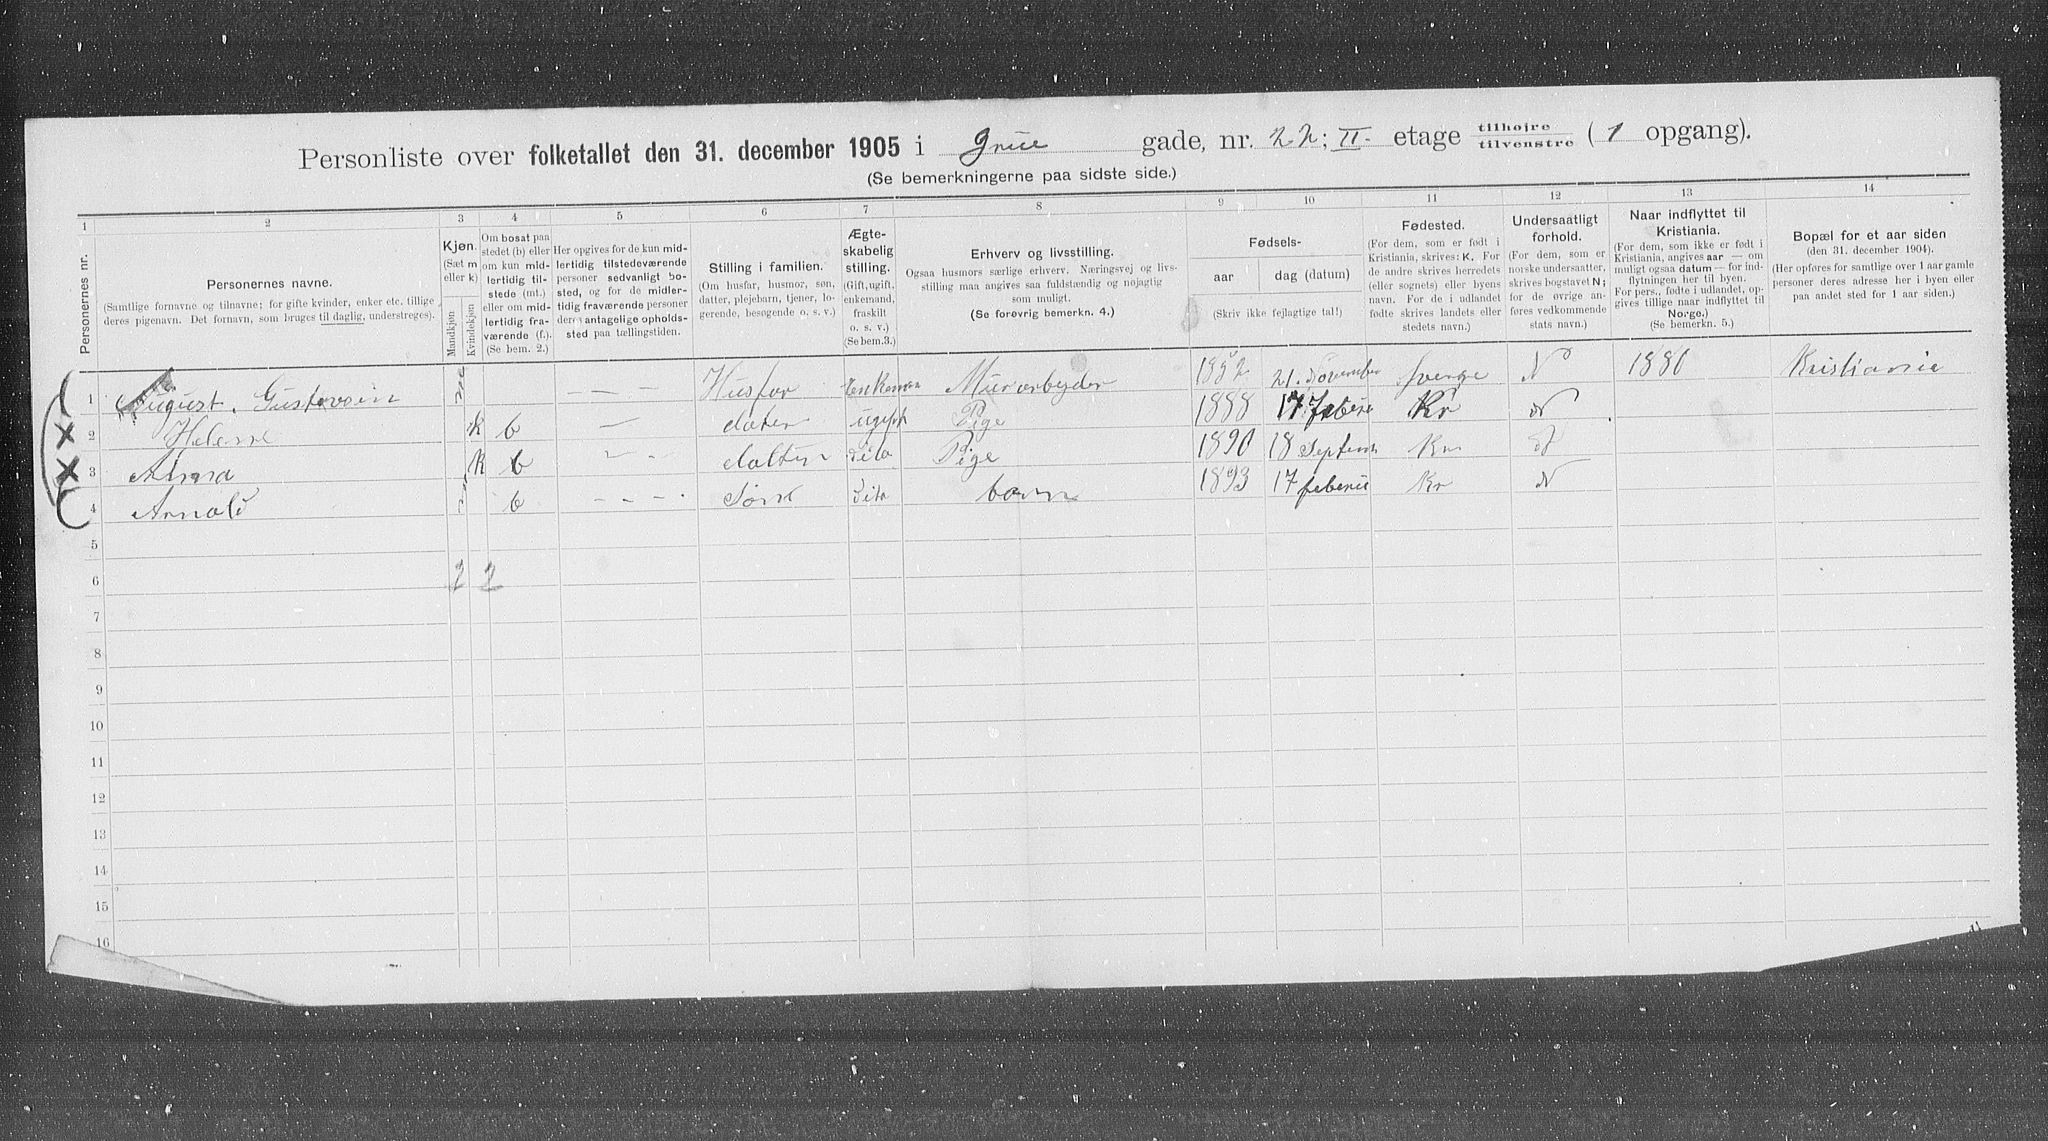 Personliste over folketallet den 31. december 1905 i Grüe gade, nr. 22; II. etage tilhøjre tilvenstre (1 opgang).
(Se bemerkningerne paa sidste side.)
1 2 3 4 5 6 7 8 9 10 11 12 13 14
Personernes nr.
Personernes navne.
(Samtlige fornavne og tilnavne; for gifte kvinder, enker etc. tillige deres pigenavn. Det fornavn, som bruges til daglig, understreges).
Kjøn.
(Sæt m eller k)
Mandkjøn
Kvindekjøn
Om bosat paa stedet (b) eller om kun midlertidig tilstede (mt.) eller om midlertidig fraværende (f.).
(Se bem. 2.)
Her opgives for de kun midlertidig tilstedeværende personer sedvanligt bosted, og for de midlertidig fraværende personer deres antagelige opholdssted paa tællingstiden.
Stilling i familien.
(Om husfar, husmor, søn, datter, plejebarn, tjener, logerende, besøgende o. s. v.)
Ægteskabelig stilling.
(Gift, ugift, enkemand, fraskilt o. s. v.)
(Se bem.3.)
Erhverv og livsstilling.
Ogsaa husmors særlige erhverv. Næringsvej og livsstilling maa angives saa fuldstændig og nøjagtig som muligt.
(Se forøvrig bemerkn. 4.)
Fødsels-
aar
dag (datum)
(Skriv ikke fejlagtige tal!)
Fødested.
(For dem, som er født i Kristiania, skrives: K. For de andre skrives herredets (eller sognets) eller byens navn. For de i udlandet fødte skrives landets eller stedets navn.)
Undersaatligt forhold.
(For dem, som er norske undersaatter, skrives bogstavet N; for de øvrige anføres vedkommende stats navn.)
Naar indflyttet til Kristiania.
(For dem, som ikke er født i Kristiania, angives aar — om muligt ogsaa datum — for indflytningen her til byen.
For pers., fødte i udlandet, opgives tillige naar indflyttet til Norge.)
(Se bemerkn. 5.)
Bopæl for et aar siden
(den 31. december 1904).
(Her opføres for samtlige over 1 aar gamle personer deres adresse her i byen eller paa andet sted for 1 aar siden.)
1 August. Gustavsen m — — — Husfar Enkeman Murarbejder 21. November Sverge N 1880 Kristiania
2 Helene k b — dater ugift Pige 1888 17 Kr N
3 k b — — datter dito Pige 1890 18 Septem Kr N
4 Arnold m b — — — Sønn Dito barn 1893 17 Kr N
5
6 2 2
7
8
9
10
11
12
13
14
15
16